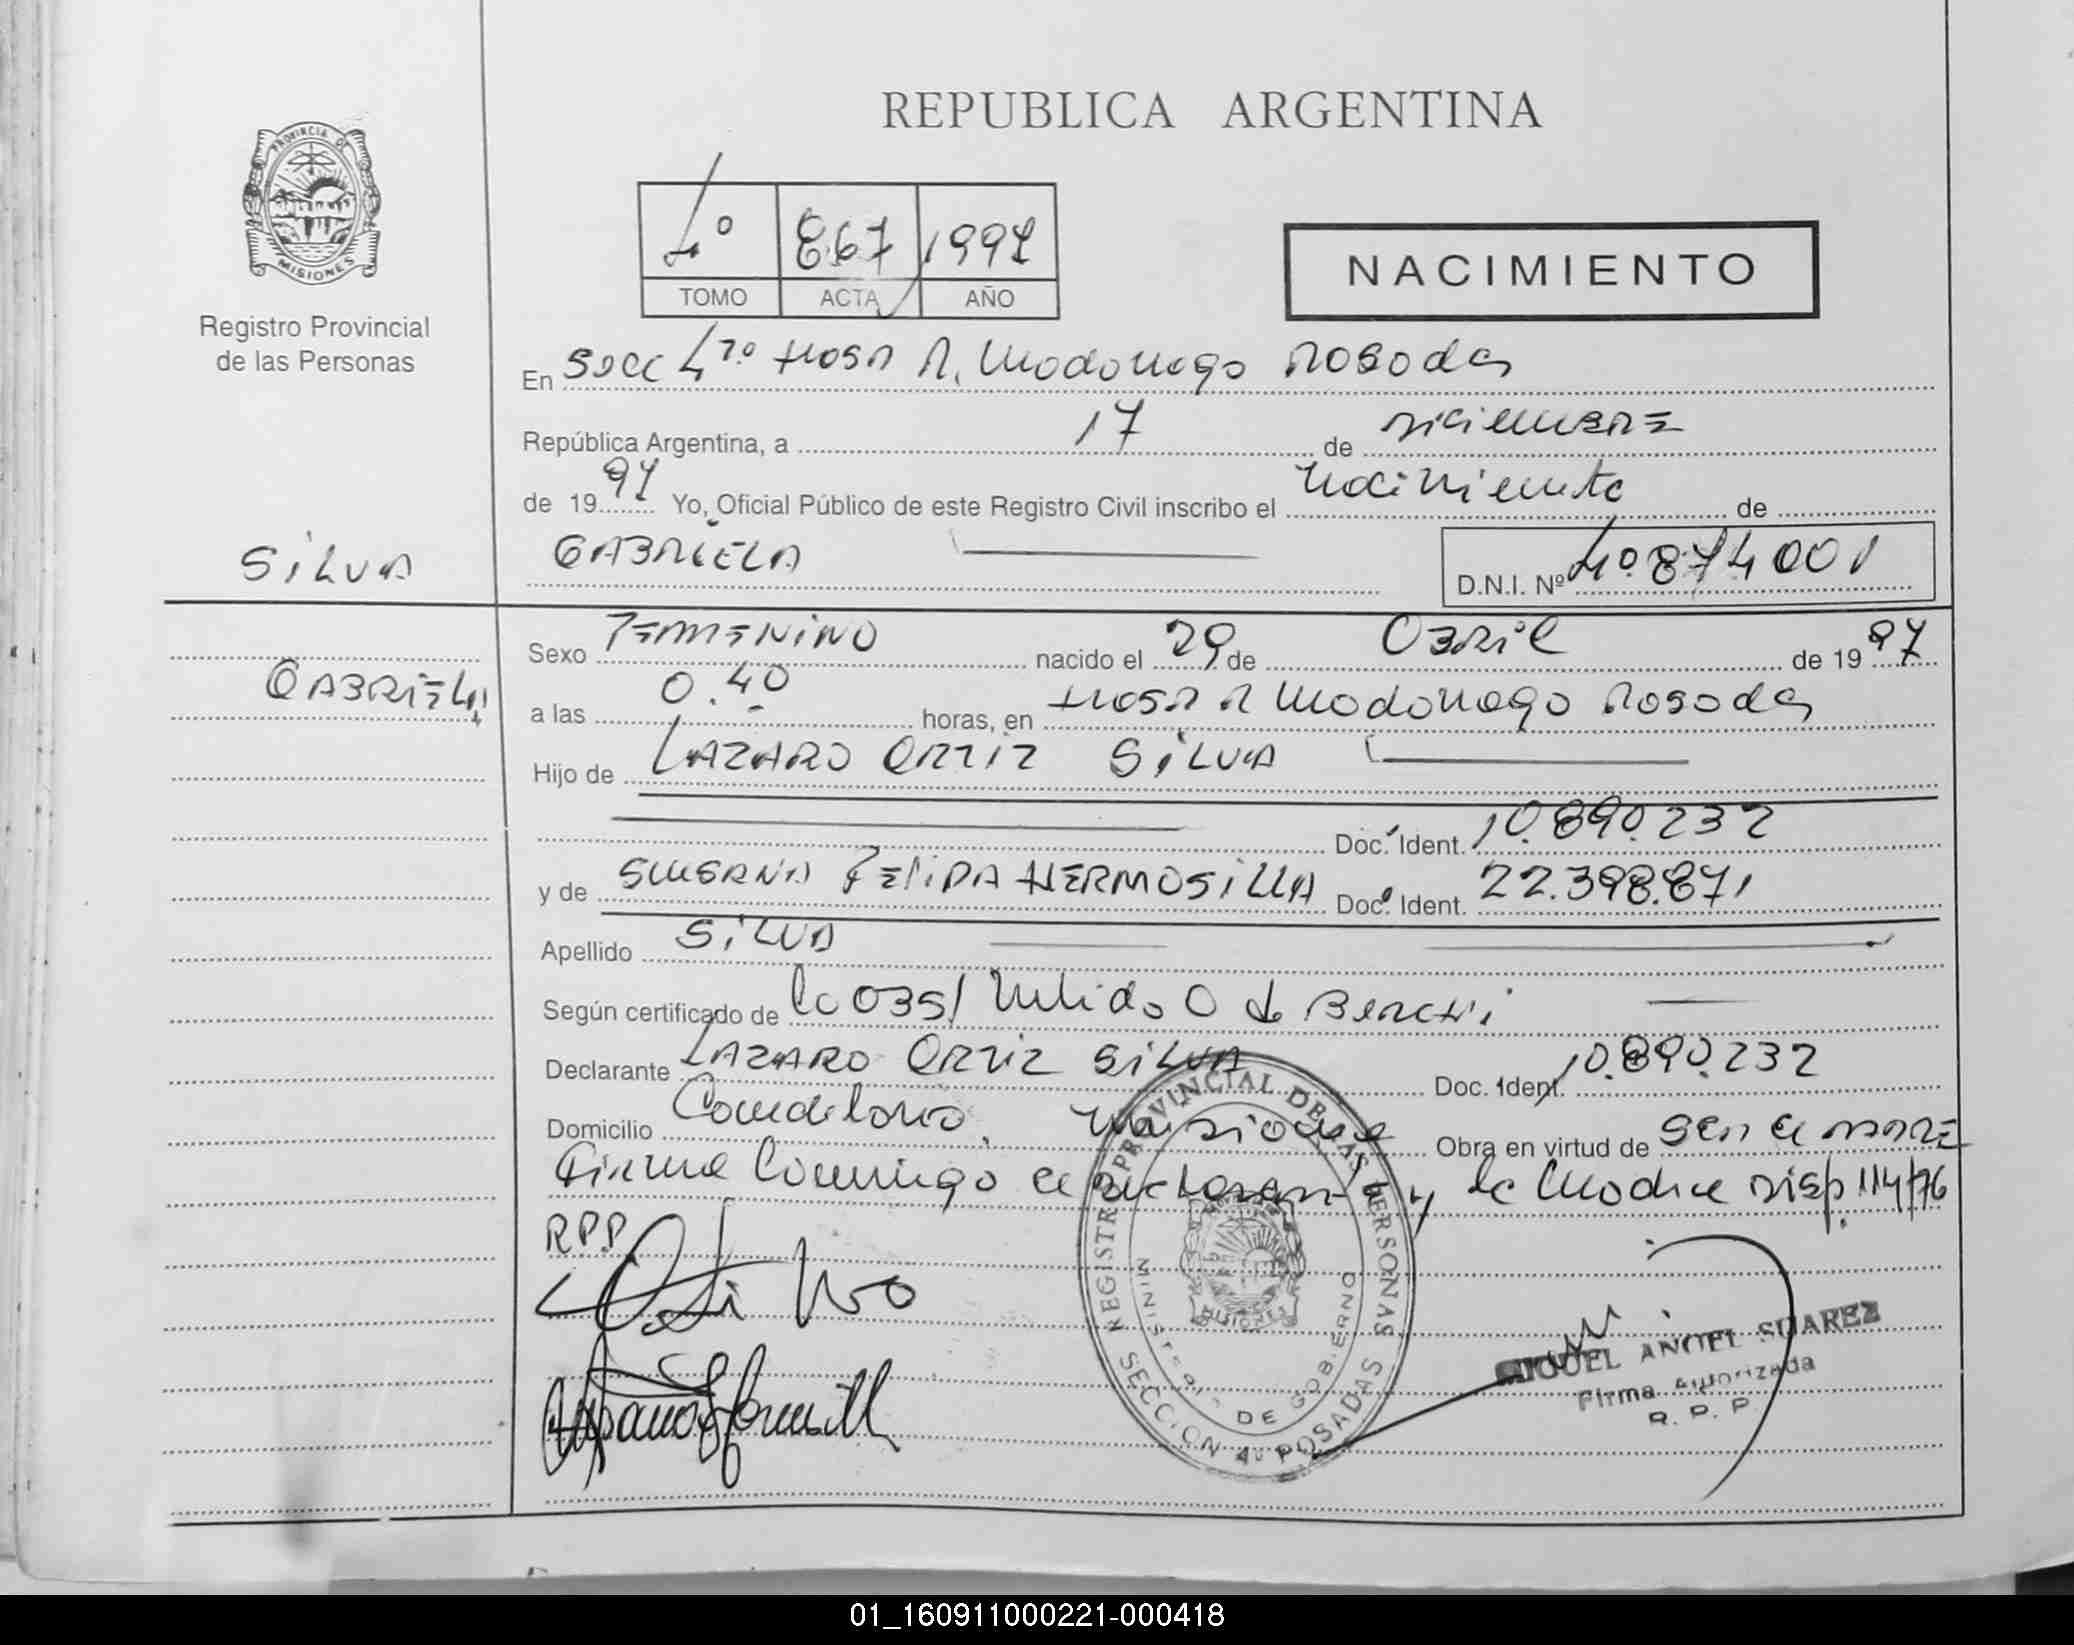 REPUBLICA ARGENTINA
PROVINCIA DE
MISIONES
Registro Provincial
de las Personas
4º 867 1997
TOMO ACTA AÑO
NACIMIENTO
En Secc 4ta Hosp R. Madariaga Posadas
República Argentina, a 17 de Diciembre
de 1997 Yo, Oficial Público de este Registro Civil inscribo el Nacimiento de
SILVA
GABRIELA
D.N.I. Nº 40.874001
Sexo FEMENINO nacido el 29 de ABRIL de 1997
GABRIELA
a las 0.40 horas, en Hosp R Madariaga Posadas
Hijo de LAZARO ORTIZ SILVA
Doc. Ident. 10.890.232
y de SUSANA FELIPA HERMOSILLA Doc. Ident. 22.398.871
Apellido SILVA
Según certificado de de
Declarante LAZARO ORTIZ SILVA Doc. Ident. 10.890.232
Domicilio Candelaria, Misiones Obra en virtud de ser el PADRE
Firma Conmigo el declarante y la Madre Disp. 114/76
R.P.P.
REGISTRO PROVINCIAL DE LAS PERSONAS
MINISTERIO DE GOBIERNO
MISIONES
SECCION 4º POSADAS
MIGUEL ANGEL SUAREZ
Firma Autorizada
R. P. P.
01_160911000221-000418